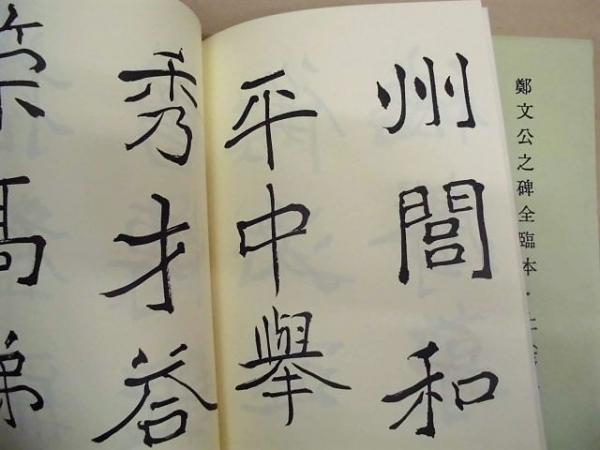 鄭文公之碑全臨本・上
州閭和
平中舉
秀才荅
策高第